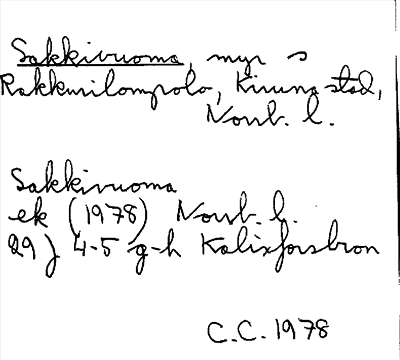 Sakkivuoma, myr s
Rakkurilompolo, Kiruna stad,
Norrb. l.
Sakkivuoma
ek (1978) Norrb. l.
29J 4-5 g-h Kalixforsbron
C.C. 1978